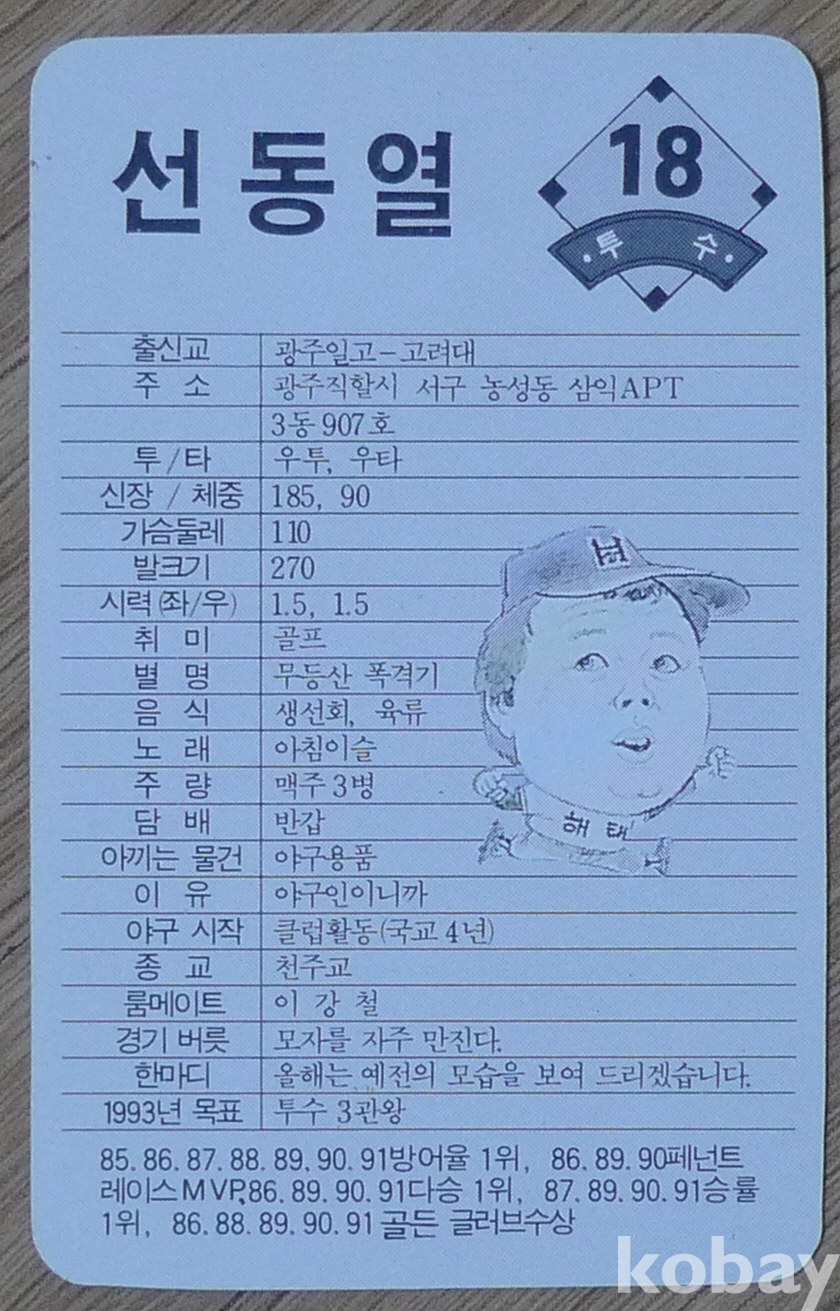 선동열
18
투 수
출신교 광주일고-고려대
주 소 광주직할시 서구 농성동 삼익APT
3동 907호
투/타 우투, 우타
신장 / 체중 185, 90
가슴둘레 110
발크기 270
시력(좌/우) 1.5, 1.5
취 미 골프
별 명 무등산 폭격기
음 식 생선회, 육류
노 래 아침이슬
주 량 맥주 3병
담 배 반갑
아끼는 물건 야구용품
이 유 야구인이니까
야구 시작 클럽활동(국교 4년)
종 교 천주교
룸메이트 이 강 철
경기 버릇 모자를 자주 만진다.
한마디 올해는 예전의 모습을 보여 드리겠습니다.
1993년 목표 투수 3관왕
해태
85. 86. 87. 88. 89. 90. 91방어율 1위, 86. 89. 90페넌트
레이스MVP, 86. 89. 90. 91다승 1위, 87. 89. 90. 91승률
1위, 86. 88. 89. 90. 91 골든 글러브수상
kobay